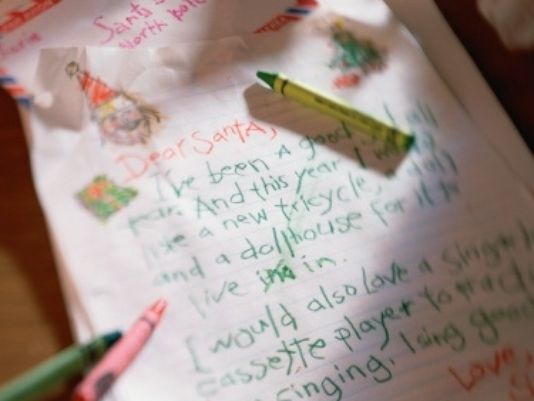 Santa
North Pole
Dear Santa,
I've been a good girl all
year. And this year I would
like a new tricycle, a doll
and a dollhouse for it to
live in in.
I would also love a singalong
cassette player to practice
singing. I sing good
Love,